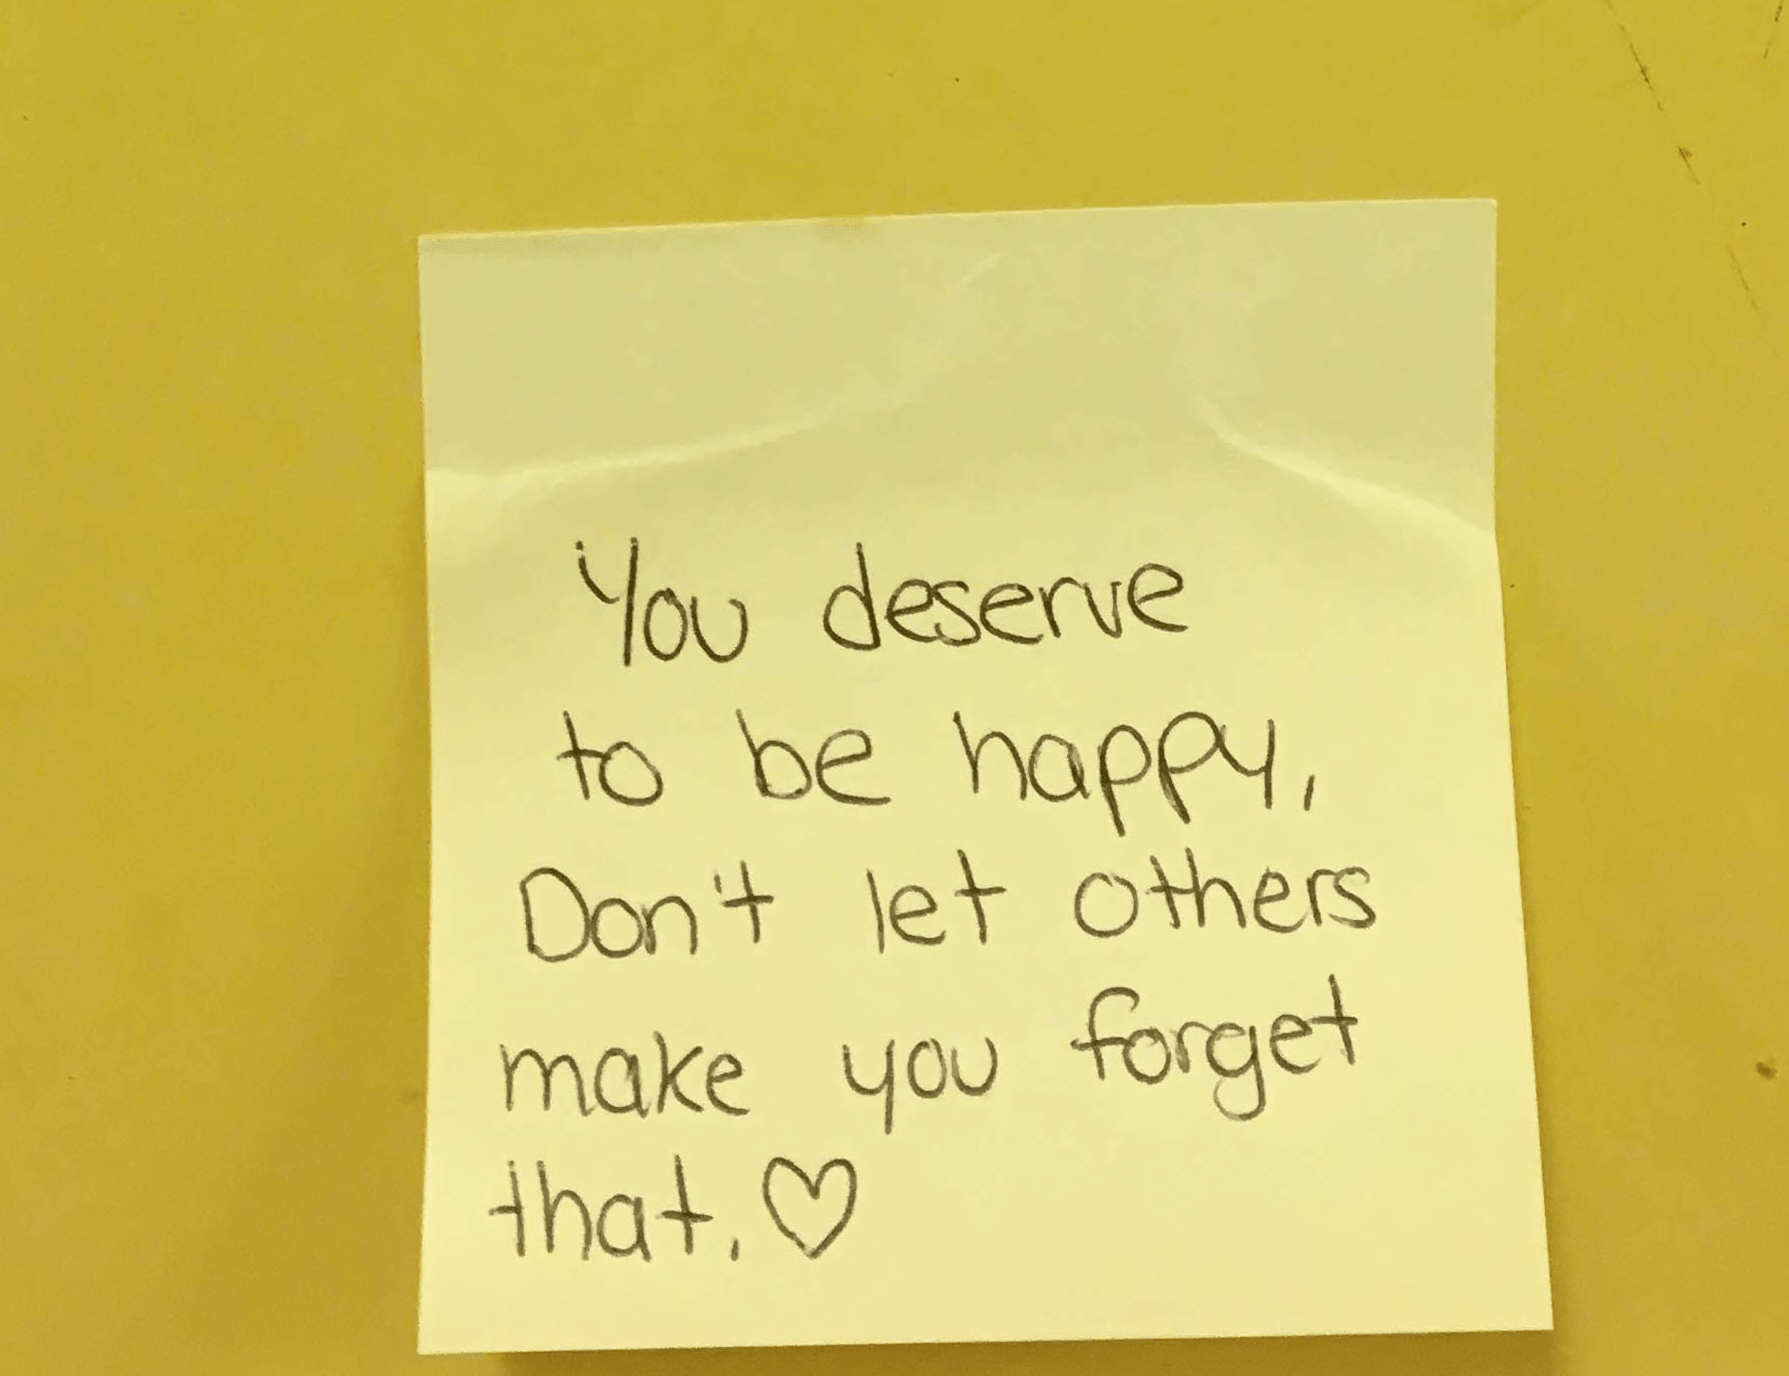 You deserve
to be happy,
Don't let others
make you forget
that. ♡